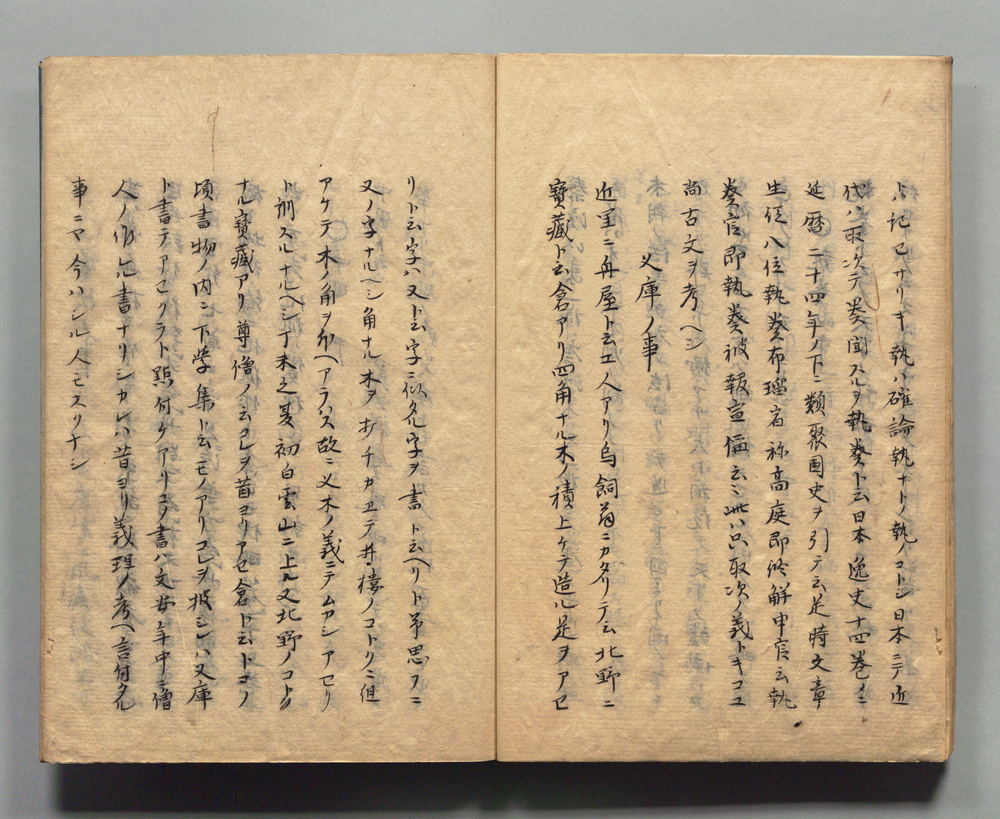 ニ記已サリキ執ハ確論執ナトノ執ノコトシ日本ニテ近
代ハ取次テ奏聞スルヲ執奏ト云日本逸史十四巻ノ
延暦二十四年ノ下ニ類聚国史ヲ引テ云是時文章
生従八位執奏布瑠宿祢高庭即脩解申官云執
奏官即執奏被報宣偁云々此ハ只取次ノ義トキコユ
尚古文ヲ考ヘシ
叉庫ノ事
近里ニ舟屋ト云エ人アリ鳥飼翁ニカタリテ云北野ニ
寶藏ト云倉アリ四角ナル木ノ積上ケテ造ル是ヲアセ
リト云字ハ又ト云字ニ似タル字ヲ書ト云ヘリト予思フニ
叉ノ字ナルヘシ角ナル木ヲ打チカエテ井樓ノコトクニ组
アケテ木ノ角ヲ外ヘアラハス故ニ叉木ノ義ニテムカシアセリ
ト訓スルナルヘシ丁未之夏初白雲山ニ上ル又北野ノコトク
ナル寶藏アリ尊僧ノ云コレヲ昔ヨリアセ倉ト云トコノ
頃書物ノ内ニ下学集ト云モノアリコレヲ披シハ叉庫
ト書テアセクラト點付ケアリコノ書ハ文安年中ニ僧
人ノ作ル書ナリシカレハ昔ヨリ義理ノ考ヘ言付タル
事ニヤ今ハシル人モスクナシ